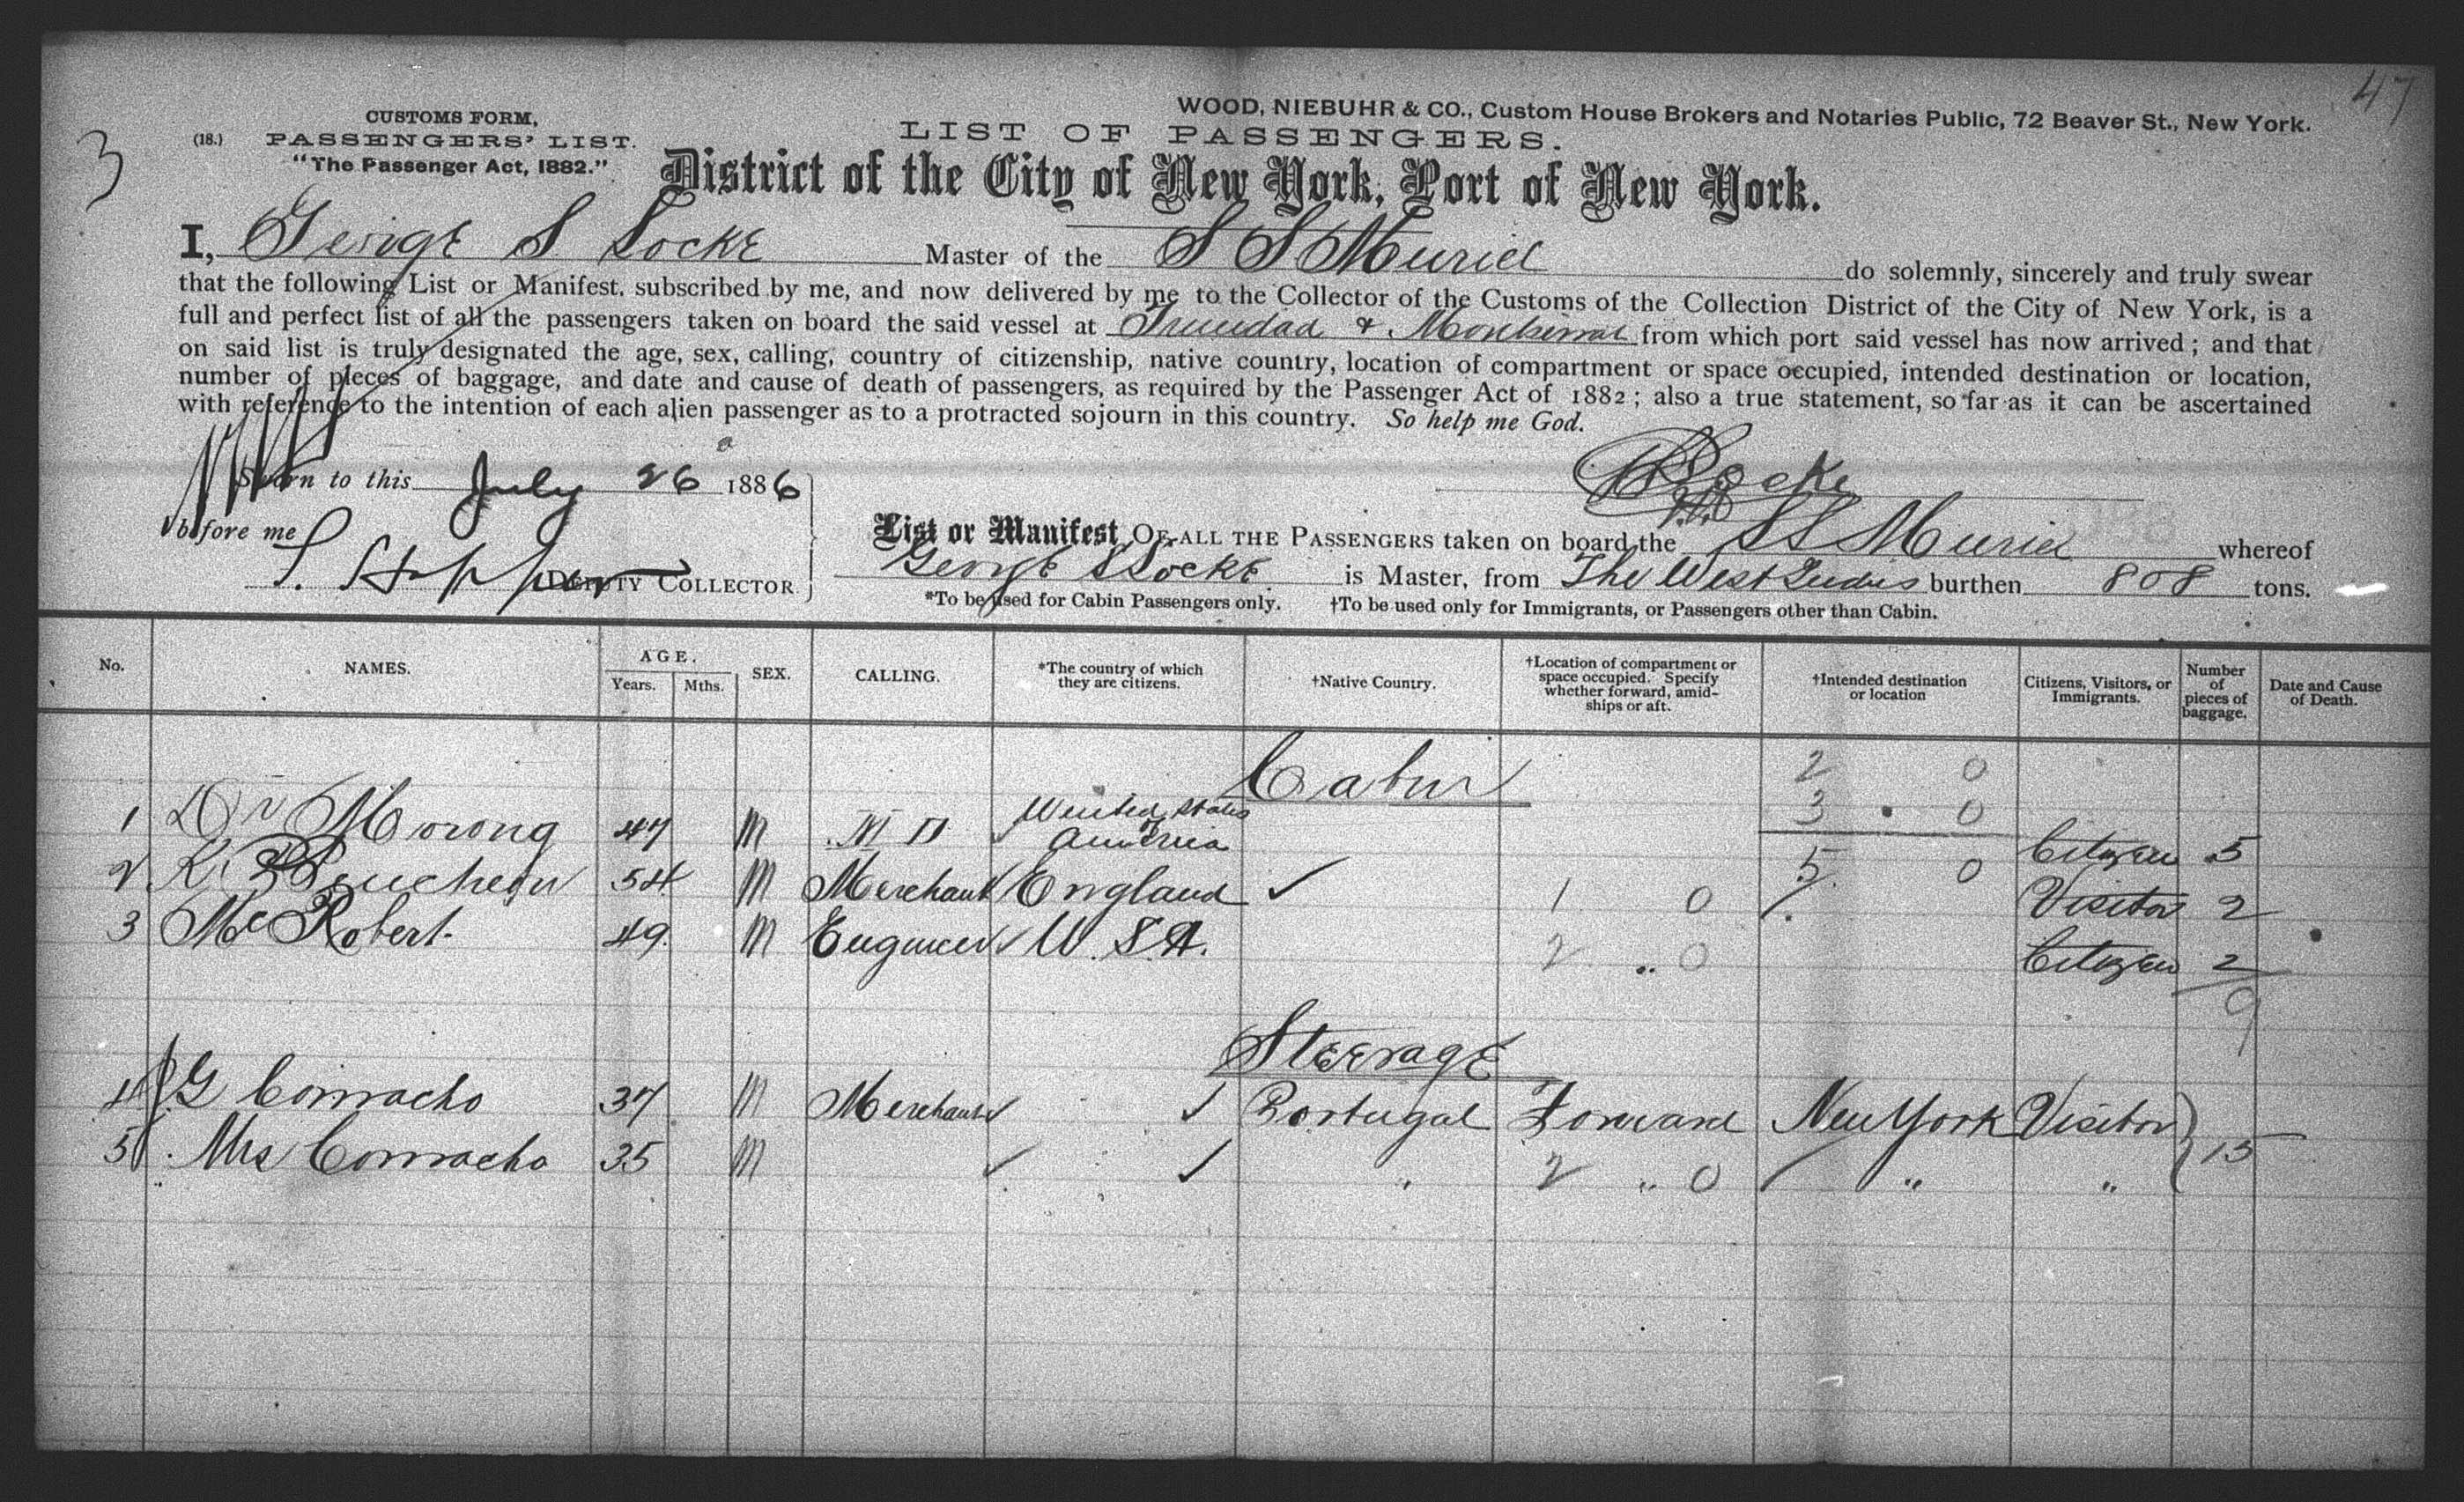 47
3
CUSTOMS FORM,
(18.) PASSENGERS' LIST.
"The Passenger Act, 1882."
WOOD, NIEBUHR & CO., Custom House Brokers and Notaries Public, 72 Beaver St., New York.
LIST OF PASSENGERS.
District of the City of New York, Port of New York.
I, George S Locke Master of the S S Muriel do solemnly, sincerely and truly swear
that the following List or Manifest, subscribed by me, and now delivered by me to the Collector of the Customs of the Collection District of the City of New York, is a
full and perfect list of all the passengers taken on board the said vessel at Trinidad & Montserrat from which port said vessel has now arrived; and that
on said list is truly designated the age, sex, calling, country of citizenship, native country, location of compartment or space occupied, intended destination or location,
number of pieces of baggage, and date and cause of death of passengers, as required by the Passenger Act of 1882; also a true statement, so far as it can be ascertained
with reference to the intention of each alien passenger as to a protracted sojourn in this country. So help me God.
Sworn to this July 26 1886
Locke
before me
DEPUTY COLLECTOR
List or Manifest OF ALL THE PASSENGERS taken on board the SS Muriel whereof
George S Locke is Master, from The West Indies burthen 808 tons.
*To be used for Cabin Passengers only. †To be used only for Immigrants, or Passengers other than Cabin.
No. NAMES. AGE. Years. Mths. SEX. CALLING. *The country of which they are citizens. †Native Country. †Location of compartment or space occupied. Specify whether forward, amidships or aft. †Intended destination or location Citizens, Visitors, or Immigrants. Number of pieces of baggage. Date and Cause of Death.
Cabin 2 0
3 0
1 Dr Morong 47 M M D United States of America 5 0 Citizen 5
2 54 M Merchant England 1 0 Visitor 2
3 Mc Robert 49 M Engineer U. S. A. 2 " 0 Citizen 2
9
Steerage
4 G Comacho 37 M Merchant Portugal Forward New York Visitor
5 Mrs Comacho 35 M " 2 " 0 " " 15